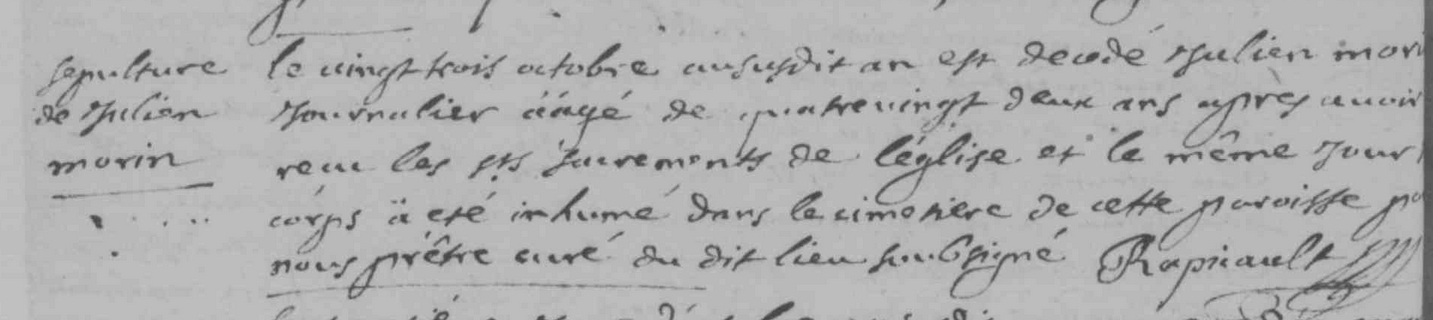 sepulture
de Julien
morin
le vingt trois octobre au susdit an est decedé Julien mori
Journalier äàgé de quatrevingt deux ans apres avoir
receu les sts sacrements de l'église et le même Jour
corps ä eté inhumé dans le cimetiere de cette paroisse
nous prêtre curé du dit lieu soubsigné